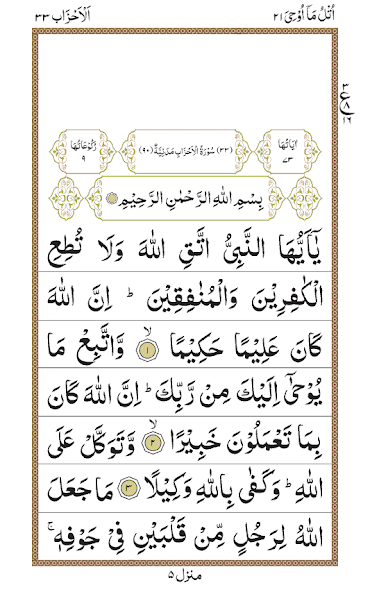 اُتْلُ مَاۤ اُوْحِیَ ۲۱
اَلْاَحْزَاب ۳۳
۳
ع
۸
۱۶
اٰیَاتُهَا
۷۳
(۳۳) سُوْرَةُ الْاَحْزَابِ مَدَنِیَّةٌ (۹۰)
رُكُوْعَاتُهَا
۹
بِسْمِ اللّٰهِ الرَّحْمٰنِ الرَّحِیْمِ
یٰۤاَیُّهَا النَّبِیُّ اتَّقِ اللّٰهَ وَلَا تُطِعِ
الْكٰفِرِیْنَ وَالْمُنٰفِقِیْنَ ؕ اِنَّ اللّٰهَ
كَانَ عَلِیْمًا حَكِیْمًا ۙ‏﴿۱﴾ وَّاتَّبِعْ مَا
یُوْحٰۤی اِلَیْكَ مِنْ رَّبِّكَ ؕ اِنَّ اللّٰهَ كَانَ
بِمَا تَعْمَلُوْنَ خَبِیْرًا ۙ‏﴿۲﴾ وَّتَوَكَّلْ عَلَی
اللّٰهِ ؕ وَكَفٰی بِاللّٰهِ وَكِیْلًا ﴿۳﴾ مَا جَعَلَ
اللّٰهُ لِرَجُلٍ مِّنْ قَلْبَیْنِ فِیْ جَوْفِهٖ ۚ
منزل ۵